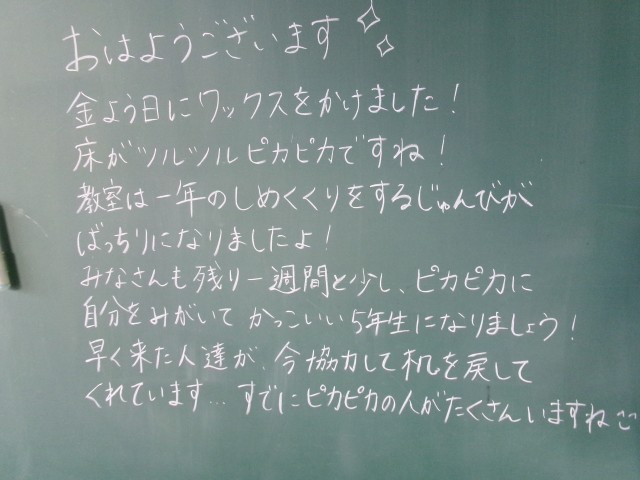 おはようございます
金よう日にワックスをかけました!
床がツルツルピカピカですね!
教室は一年のしめくくりをするじゅんびが
ばっちりになりましたよ!
みなさんも残り一週間と少し、ピカピカに
自分をみがいてかっこいい5年生になりましょう!
早く来た人達が、今協力して机を戻して
くれています…すでにピカピカの人がたくさんいますね